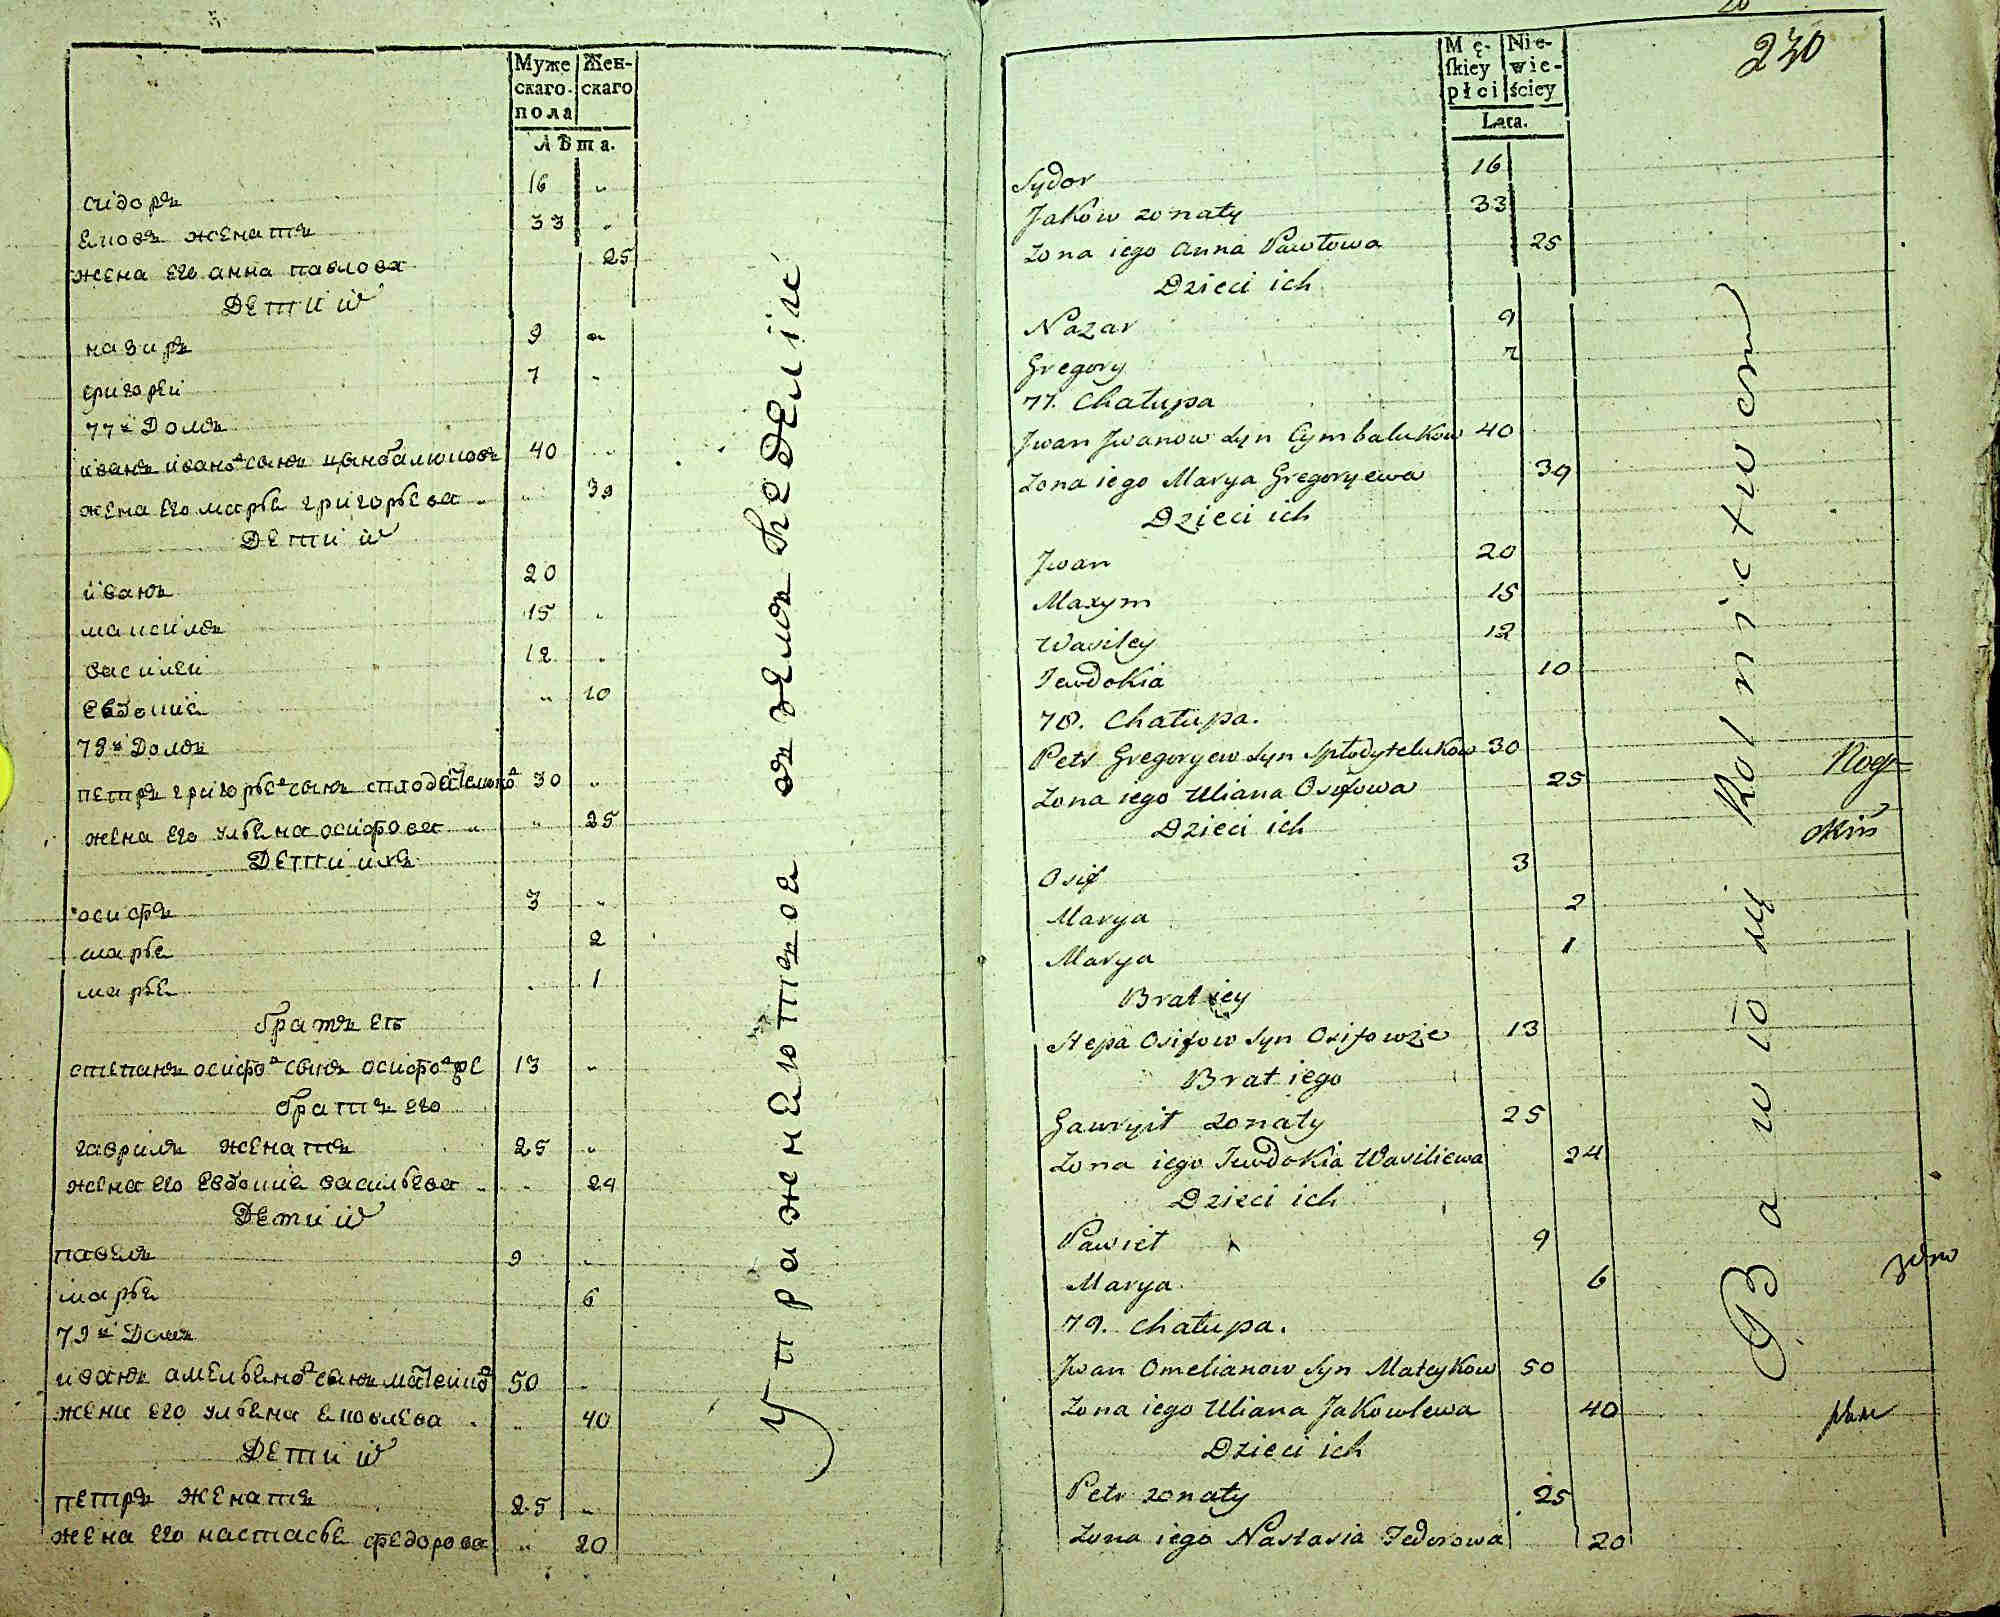 Муже
скаго
пола
Жен-
скаго
Лѣта.
сидоръ 16 "
ековъ женатъ 33 "
жена его анна павлова 25
Дети иⷯ
назаръ 9 "
григореи 7 "
77ⷨ Домъ
иванъ иваноⷡ сынъ цынбалюковъ 40 "
жена его марье григорьева " 39
Дети иⷯ
иванъ 20
максимъ 15 "
василеи 12 "
евдокие " 10
78ⷨ Домъ
петръ григорьеⷡ сынъ сплодителюкоⷡ 30 "
жена его ульена осифова " 25
Дети ихъ
осифъ 3 "
марье 2
марье 1
братъ еѣ
степанъ осифоⷡ сынъ 13 "
братъ его
гаврилъ женатъ 25 "
жена его евдокие васильева 24
Дети иⷯ
павелъ 9 "
марье 6
79ⷨ Домъ
иванъ амельеноⷡ сынъ матеикоⷡ 50 "
жена его ульена ековлева " 40
Дети иⷯ
петръ женатъ 25 "
жена его настасье федорова " 20
Упражнеютца въ земледелие
230
Mę-
skiey
płci
Nie-
wie-
ściey
Lata.
Sydor 16
Jaków zonaty 33
Zona iego Anna Pawłowa 25
Dzieci ich
Nazar 9
Gregory 7
77. Chałupa
Jwan Jwanow Syn Cymbalukow 40
Zona iego Marya Gregoryewa 39
Dzieci ich
Jwan 20
Maxym 15
Wasiley 12
Jewdokia 10
78. Chałupa.
Petr Gregoryew Syn Spłodytelukow 30
Zona iego Uliana Osifowa 25
Dzieci ich
Osif 3
Marya 2
Marya 1
Brat iey
Stepa Osifow Syn 13
Brat iego
Gawryił zonaty 25
Zona iego Jewdokia Wasiliewa 24
Dzieci ich
Pawieł 9
Marya 6
79. Chałupa.
Jwan Omelianow Syn Mateykow 50
Zona iego Uliana Jakowlewa 40
Dzieci ich
Petr zonaty 25
Zona iego Nastasia Fedorowa 20
Bawio się Rolnictwem